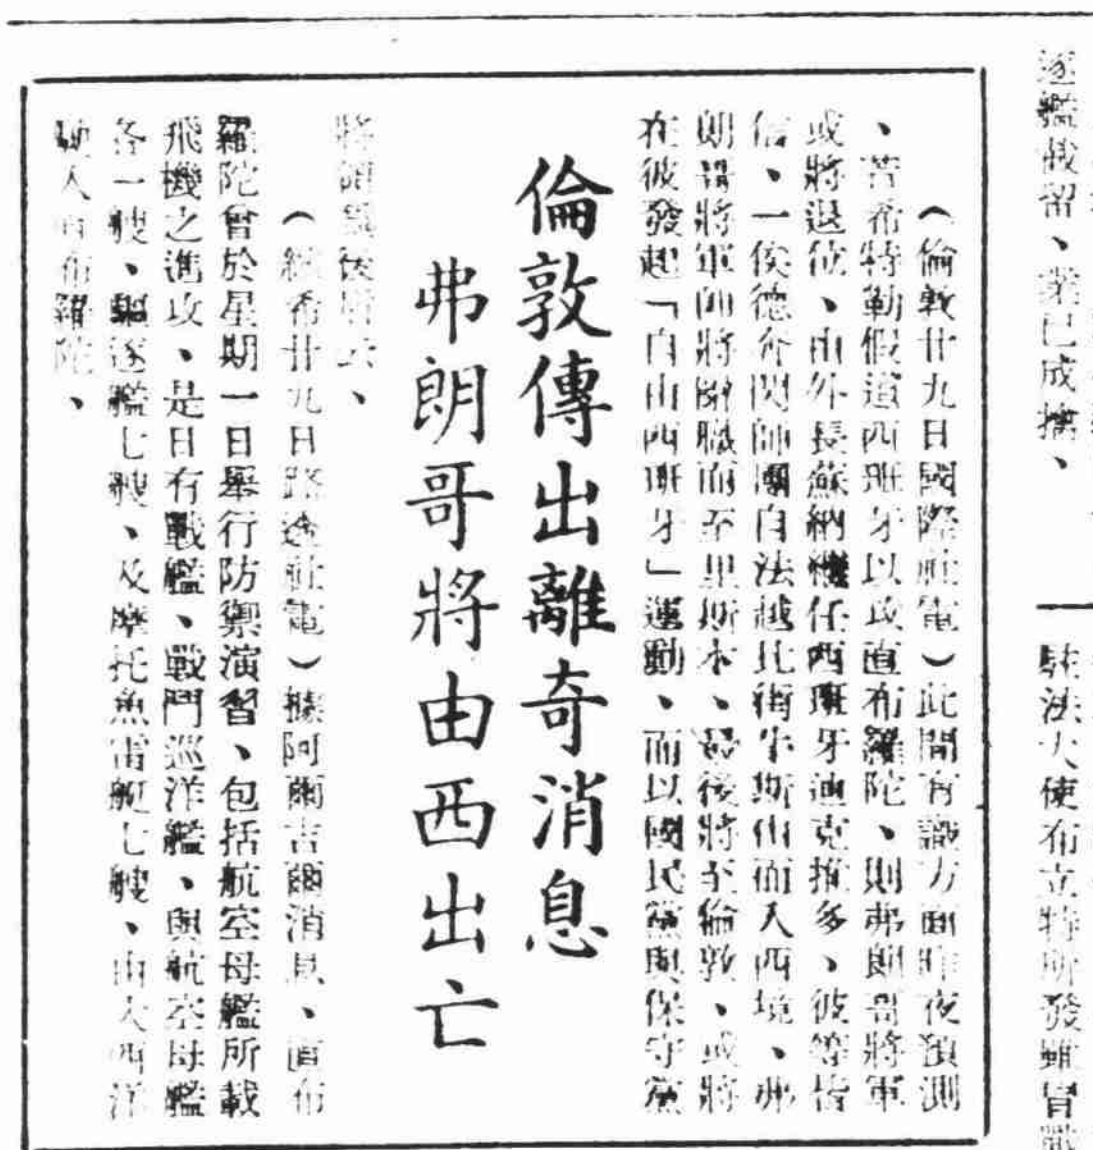 逐艦截留、業已成擒、
駐法大使布立特所發雖冒戰
(倫敦廿九日國際社電)此間有識方面昨夜預測
、若希特勒假道西班牙以攻直布羅陀、則弗朗哥將軍
或將退位、由外長蘇納繼任西班牙迪克推多、彼等皆
信、一俟德奔閃師團自法越比街牛斯山而入西境、弗
朗哥將軍卽將辭職而至里斯本、最後將至倫敦、或將
在彼發起「自由西班牙」運動、而以國民黨與保守黨
倫敦傳出離奇消息
弗朗哥將由西出亡
將師為後盾云、
(紐希廿九日路透社電)據阿爾吉爾消息、直布
羅陀曾於星期一日舉行防禦演習、包括航空母艦所載
飛機之進攻、是日有戰艦、戰鬥巡洋艦、與航空母艦
各一艘、驅逐艦七艘、及摩托魚雷艇七艘、由大西洋
駛入直布羅陀、